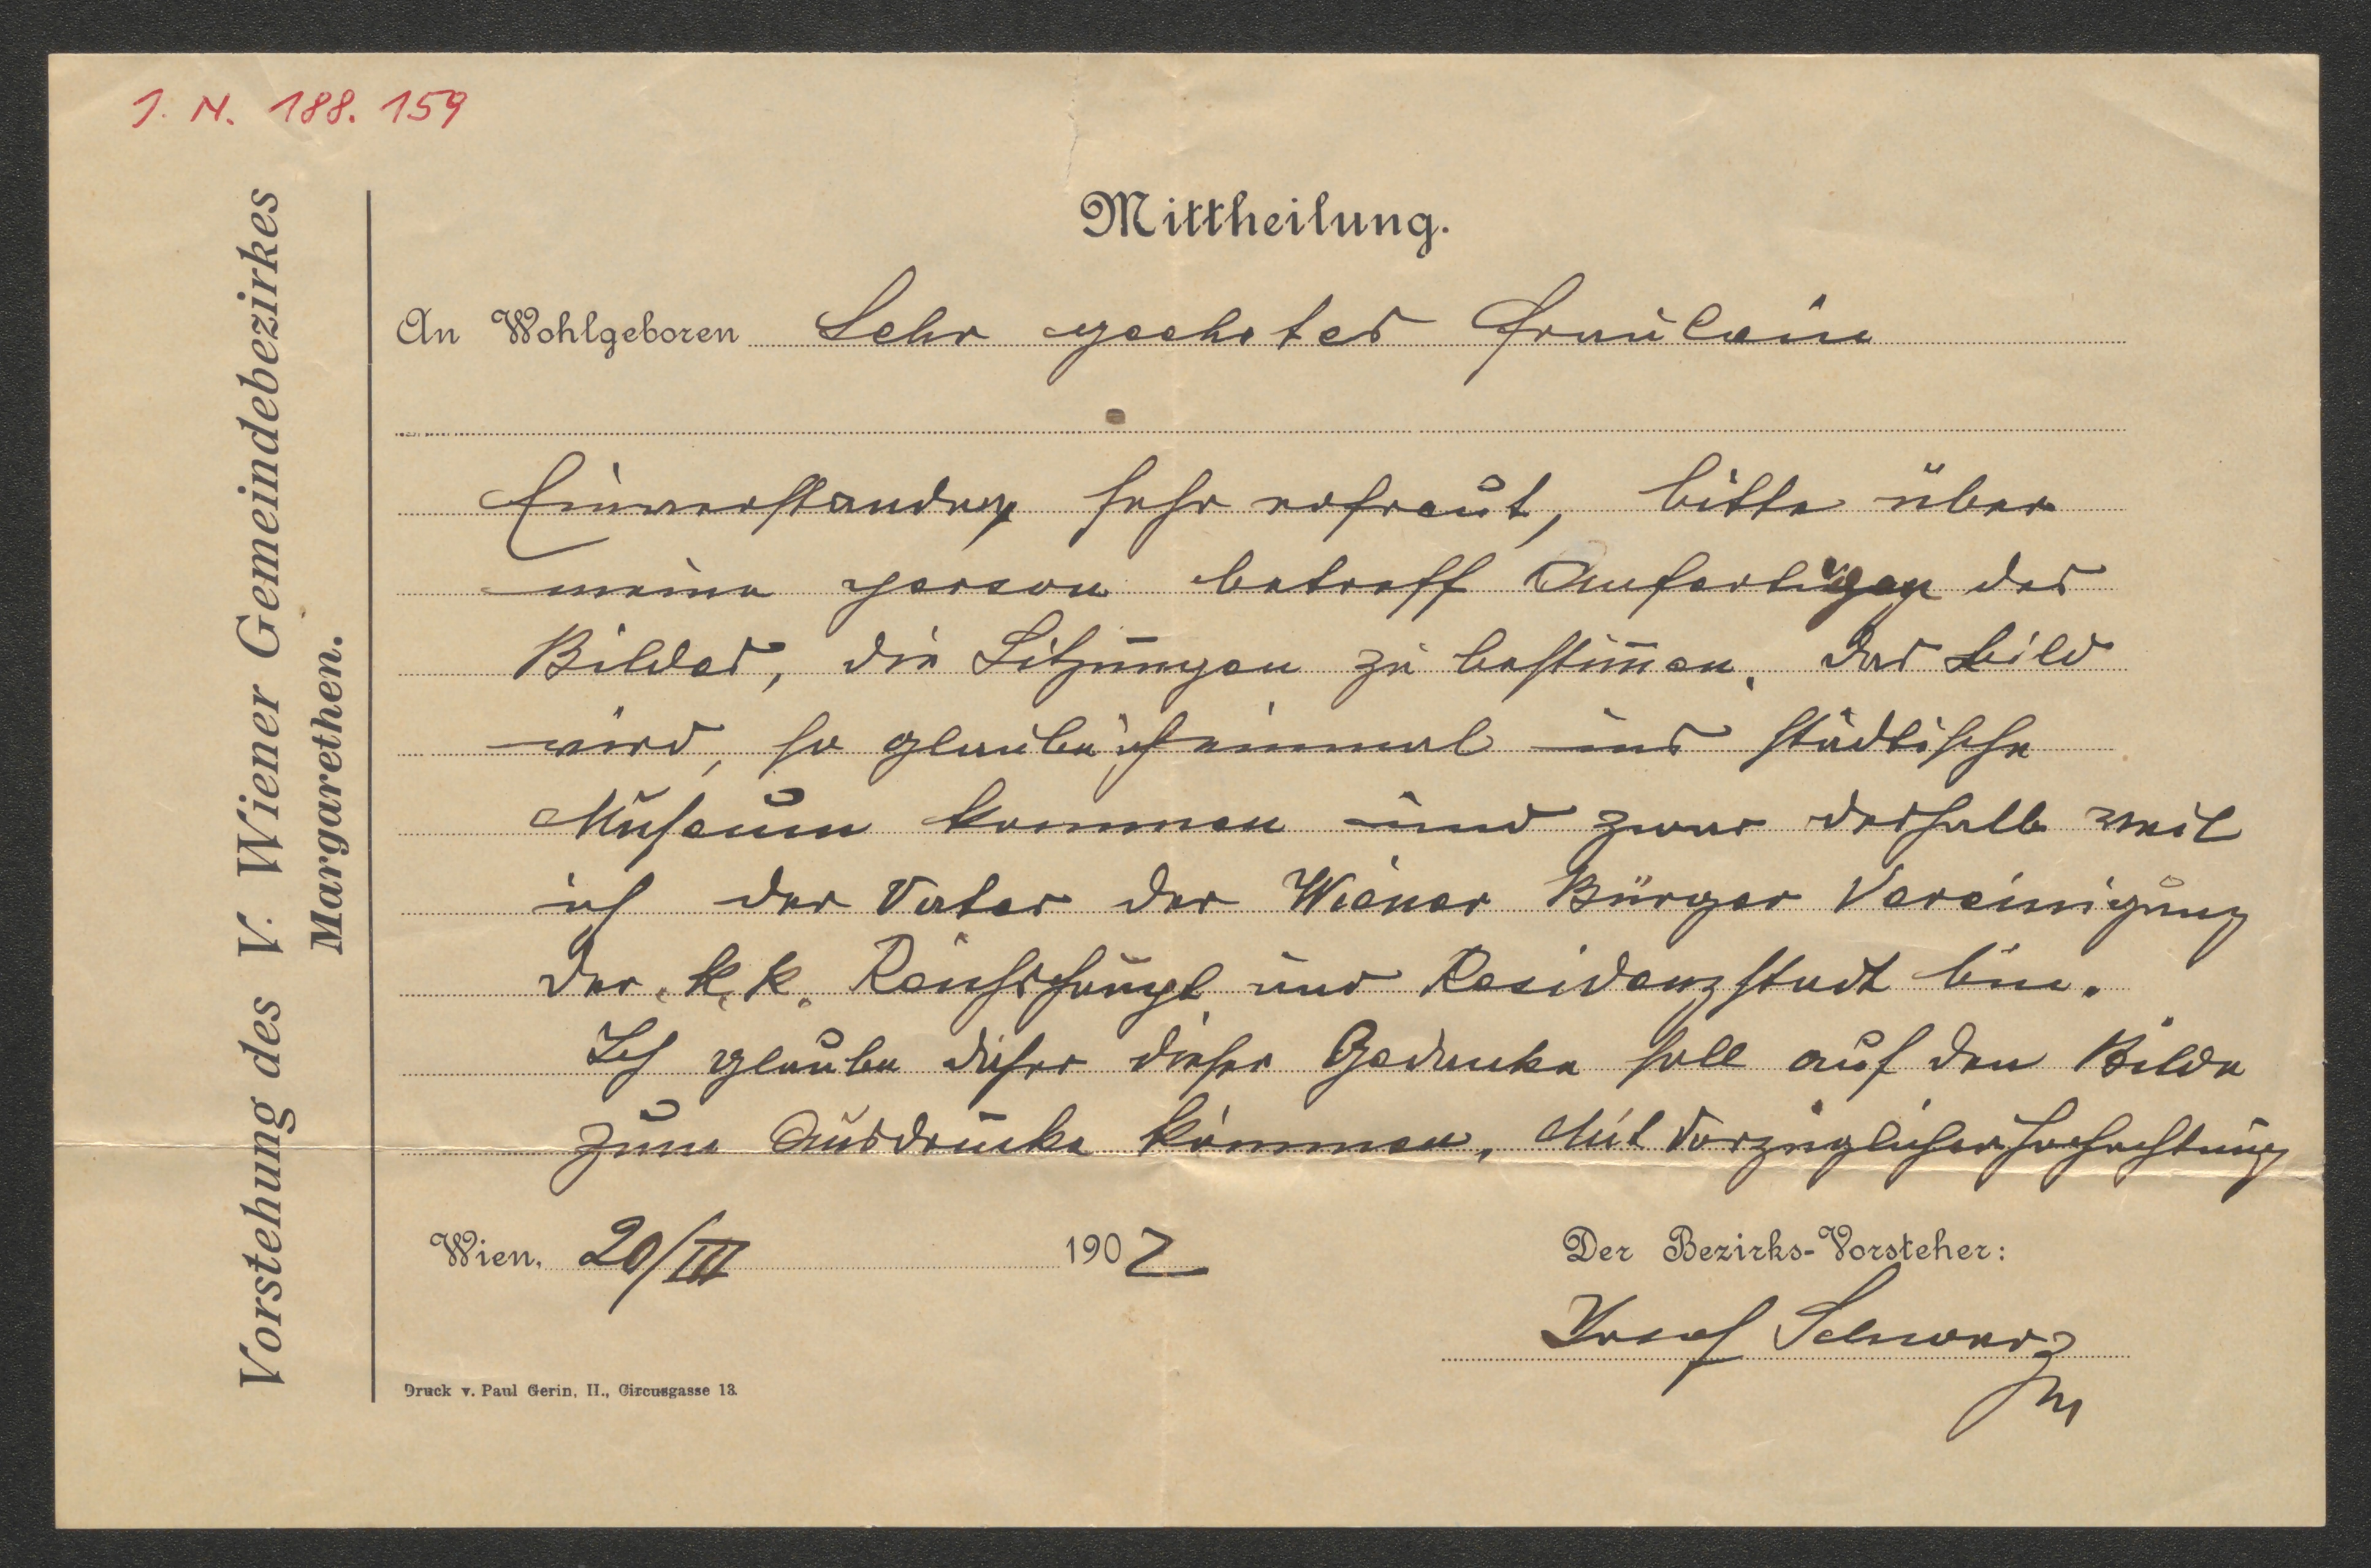 J. N. 188.159
Vorstehung des V. Wiener Gemeindebezirkes
Margarethen.
Mittheilung.
An Wohlgeboren Sehr geehrtes Fräulein
Einverstanden sehr erfreut, bitte über
meine person betreff Anfertigen des
Bildes, die Sitzungen zu bestim̄en. Das Bild
wird, so glaube ich einmal ins städtische
Museum kommen und zwar deshalb weil
ich der Vater der Wiener Bürger Vereinigung
der k. k. Reichshaupt und Residenzstadt bin.
Ich glaube dieser Gedanke soll auf den Bilde
zum Ausdrucke kommen. Mit Vorzüglicher Hochachtung
Wien, 20/III 1902
Der Bezirks-Vorsteher:
Josef Schwarz
Druck v. Paul Gerin, II., Circusgasse 13.